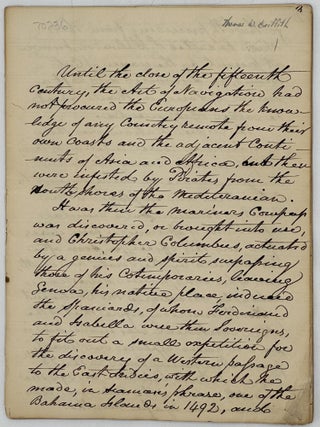 Thomas W. Griffith
Until the close of the fifteenth
Century, the Art of Navigation had
not procured the Europeans the know-
ledge of any Country remote from their
own coasts and the adjacent Conti-
nents of Asia and Africa, and then
were infested by Pirates from the
north shores of the Mediteranian.
It was then the mariners Compass
was discovered, or brought into use,
and Christopher Columbus, actuated
by a genius and spirit surpassing
those of his Cotemporaries, leaving
Genoa, his native place induced
the Spaniards, of whom Ferdinand
and Isabella were then Sovereigns,
to fit out a small expedition for
the discovery of a Western passage
to the East Indies, with which he
made, in seamans phrase, one of the
Bahama Islands in 1492, and